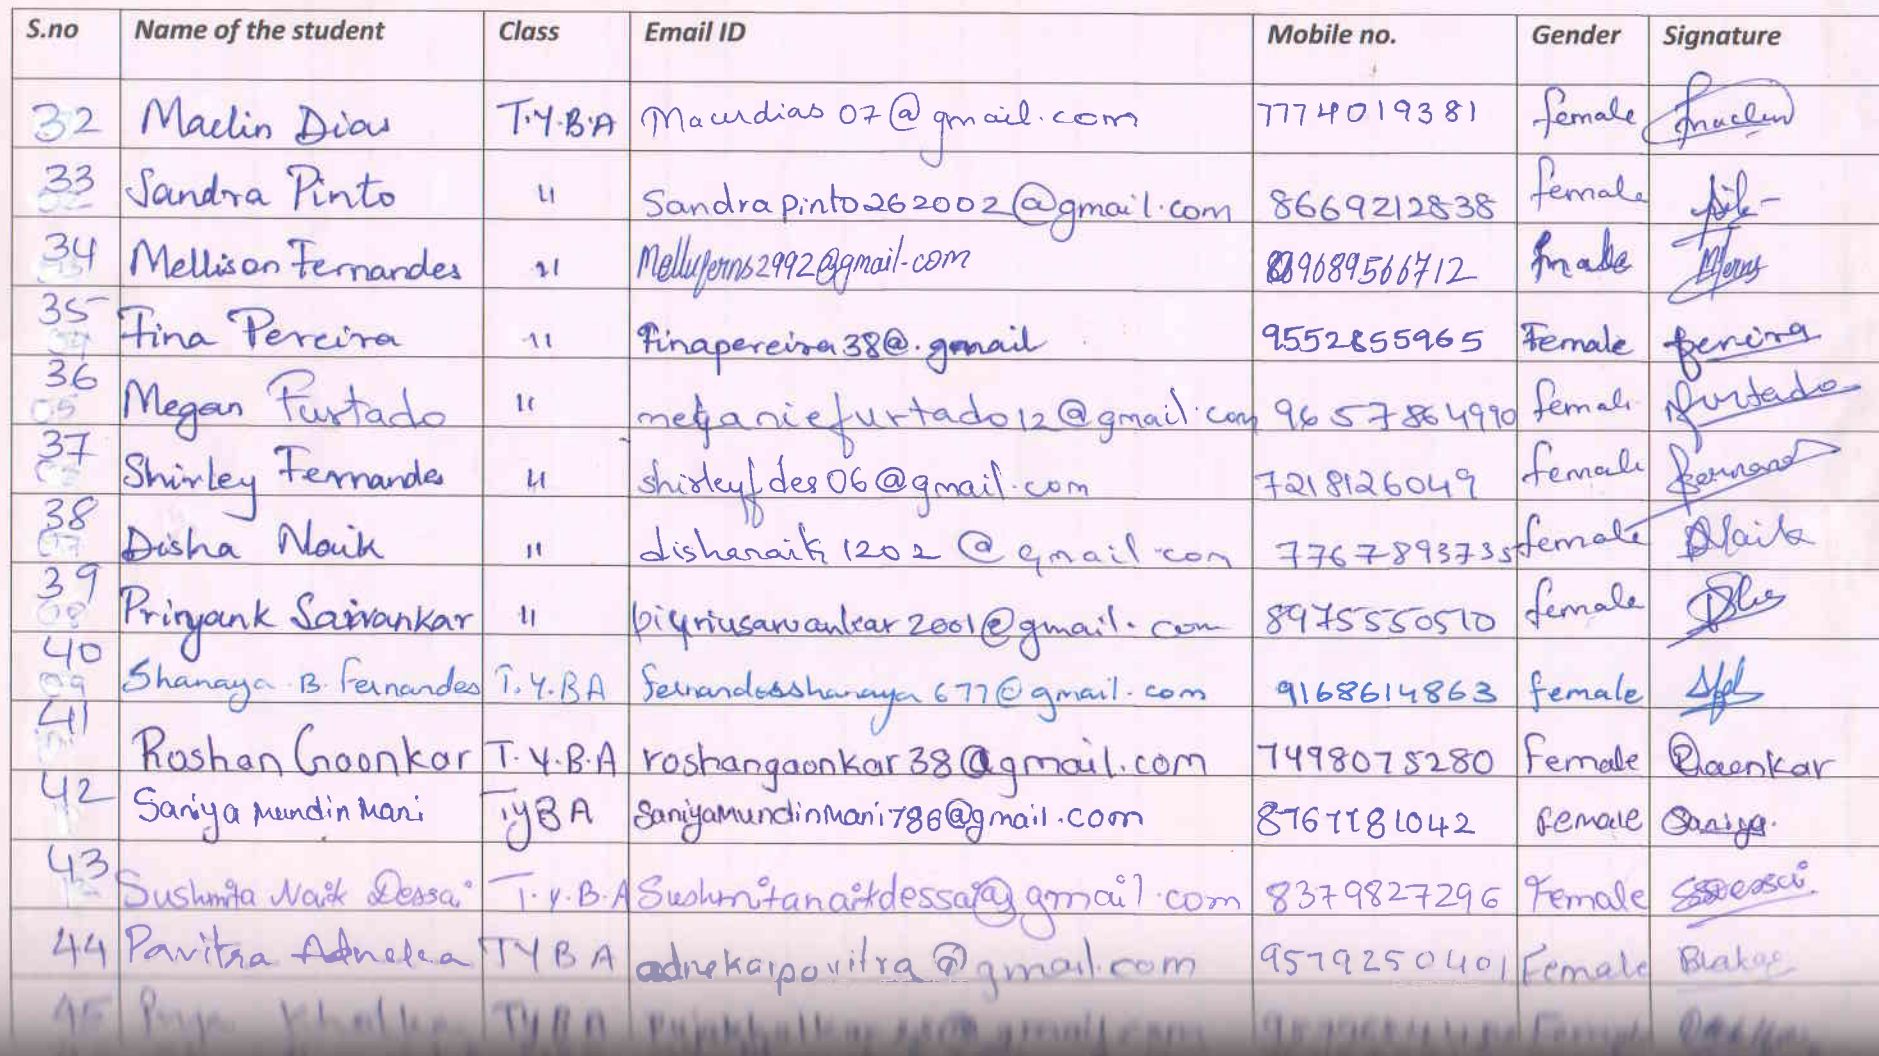 S.no Name of the student Class Email ID Mobile no. Gender Signature
32 Maclin Dias T.Y.B.A 07@gmail.com 7774019381 female
33 Sandra Pinto 11 Sandrapinto262002@gmail.com 8669212838 female
34 Mellison Fernandes 11 Mellyferns2992@gmail.com 9689566712 Mferns
35 Fina Pereira 11 Finapereira38@.gmail 9552855965 Female Pereira
36 Megan Furtado 11 meganiefurtado12@gmail.com 9657864990 female Furtado
37 Shirley Fernandes 11 shirleyfdes06@gmail.com 7218126049 female
38 Disha Naik 11 dishanaik1202@gmail.com 7767893735 female DNaik
39 11 2001@gmail.com 8975550510 female
40 Shanaya B. Fernandes T.Y.BA fernandesshanaya677@gmail.com 9168614863 female
41 Roshan Gaonkar T.Y.B.A roshangaonkar38@gmail.com 7498075280 Female Gaonkar
42 Saniya Mundinmani TYBA SaniyaMundinmani786@gmail.com 8767781042 Female Saniya.
43 Sushmita Naik Dessai T.Y.B.A Sushmitanaikdessai@gmail.com 8379827296 Female
44 Pavitra TYBA adnekarpavitra@gmail.com 9579250401 Female
45 TYBA